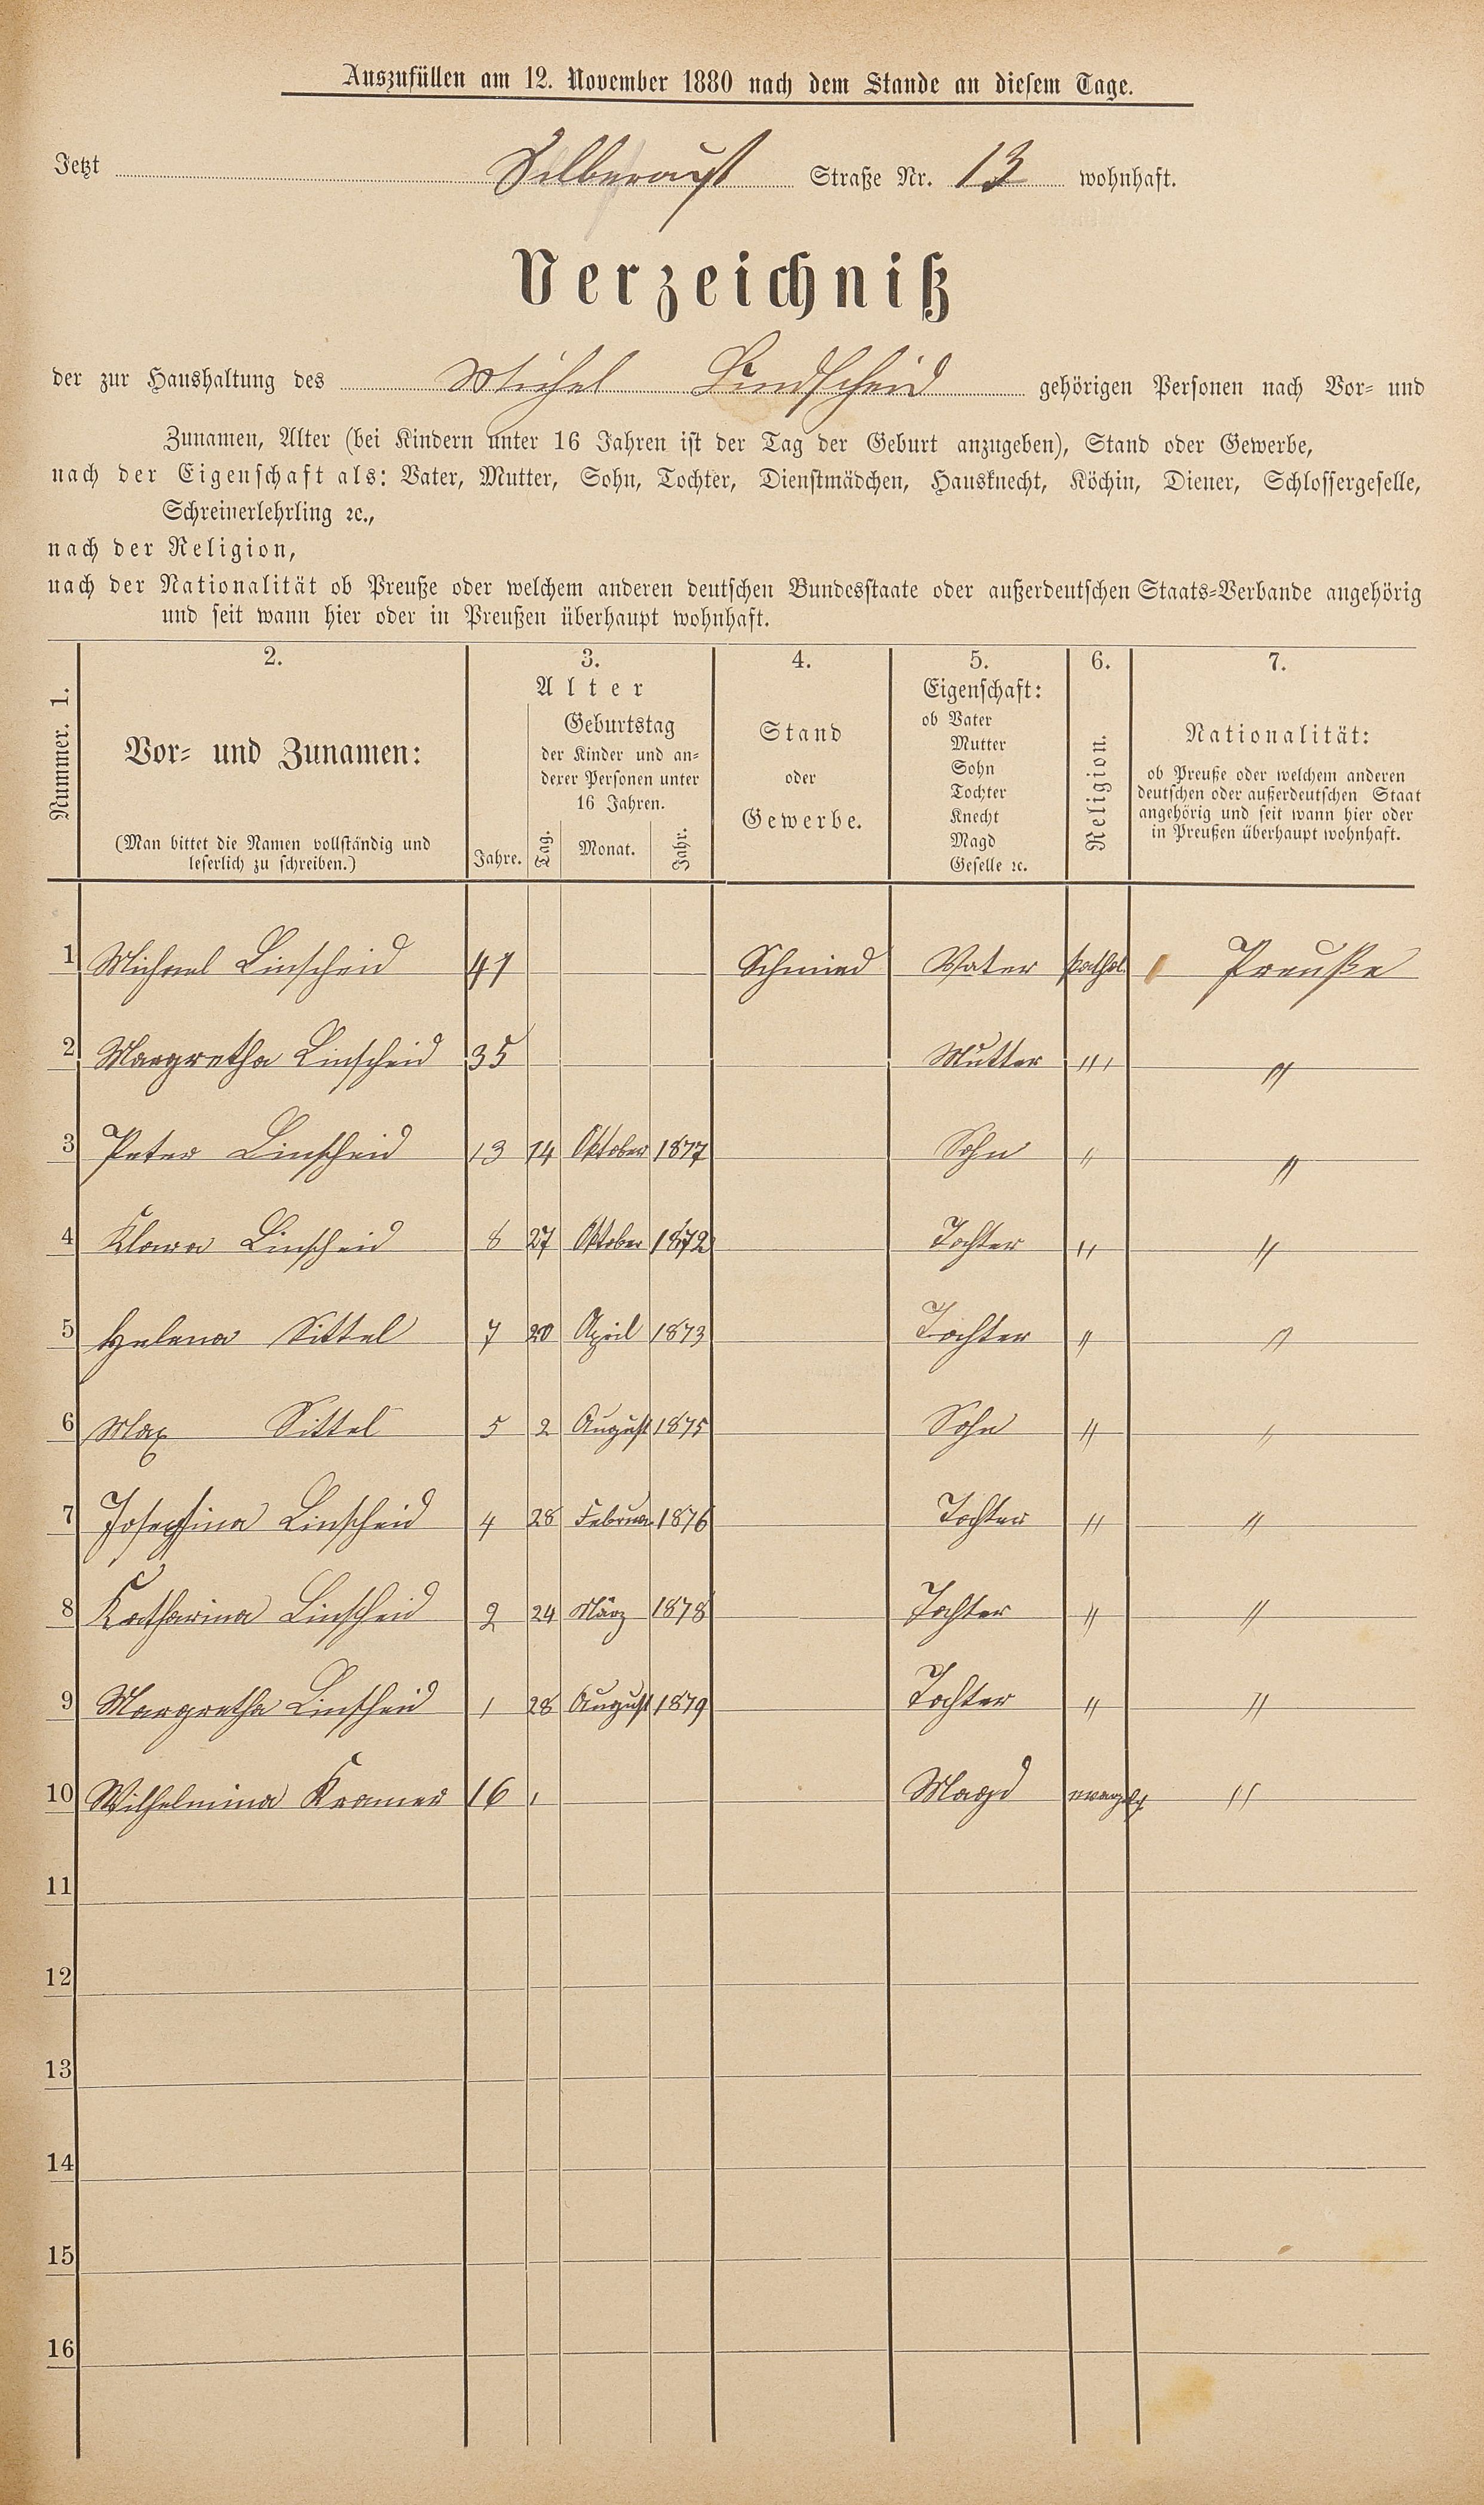 Auszufüllen am 12. November 1880 nach dem Stande an diesem Tage.
Jetzt Silberaust Straße Nr. 13 wohnhaft.
Verzeichniß
der zur Haushaltung des Michel Lindscheid gehörigen Personen nach Vor- und
Zunamen, Alter (bei Kindern unter 16 Jahren ist der Tag der Geburt anzugeben), Stand oder Gewerbe,
nach der Eigenschaft als: Vater, Mutter, Sohn, Tochter, Dienstmädchen, Hausknecht, Köchin, Diener, Schlossergeselle,
Schreinerlehrling ꝛc.,
nach der Religion,
nach der Nationalität ob Preuße oder welchem anderen deutschen Bundesstaate oder außerdeutschen Staats-Verbande angehörig
und seit wann hier oder in Preußen überhaupt wohnhaft.
Nummer. 1.
2.
Vor- und Zunamen:
(Man bittet die Namen vollständig und
leserlich zu schreiben.)
3.
Alter
Jahre.
Geburtstag
der Kinder und an-
derer Personen unter
16 Jahren.
Tag. Monat. Jahr.
4.
Stand
oder
Gewerbe.
5.
Eigenschaft:
ob Vater
Mutter
Sohn
Tochter
Knecht
Magd
Geselle ꝛc.
6.
Religion.
7.
Nationalität:
ob Preuße oder welchem anderen
deutschen oder außerdeutschen Staat
angehörig und seit wann hier oder
in Preußen überhaupt wohnhaft.
1 Michael Linscheid 41 Schmied Vater kathol. Preuße
2 Margretha Linscheid 35 Mutter " "
3 Peter Linscheid 13 14 Oktober 1877 Sohn " "
4 Klara Linscheid 8 27 Oktober 1872 Tochter " "
5 Helena Sittel 7 20 April 1873 Tochter " "
6 Max Sittel 5 2 August 1875 Sohn " "
7 Josephina Linscheid 4 28 Februar 1876 Tochter " "
8 Katharina Linscheid 2 24 März 1878 Tochter " "
9 Margretha Linscheid 1 28 August 1879 Tochter " "
10 Wilhelmina Kramer 16 Magd evangelisch "
11
12
13
14
15
16